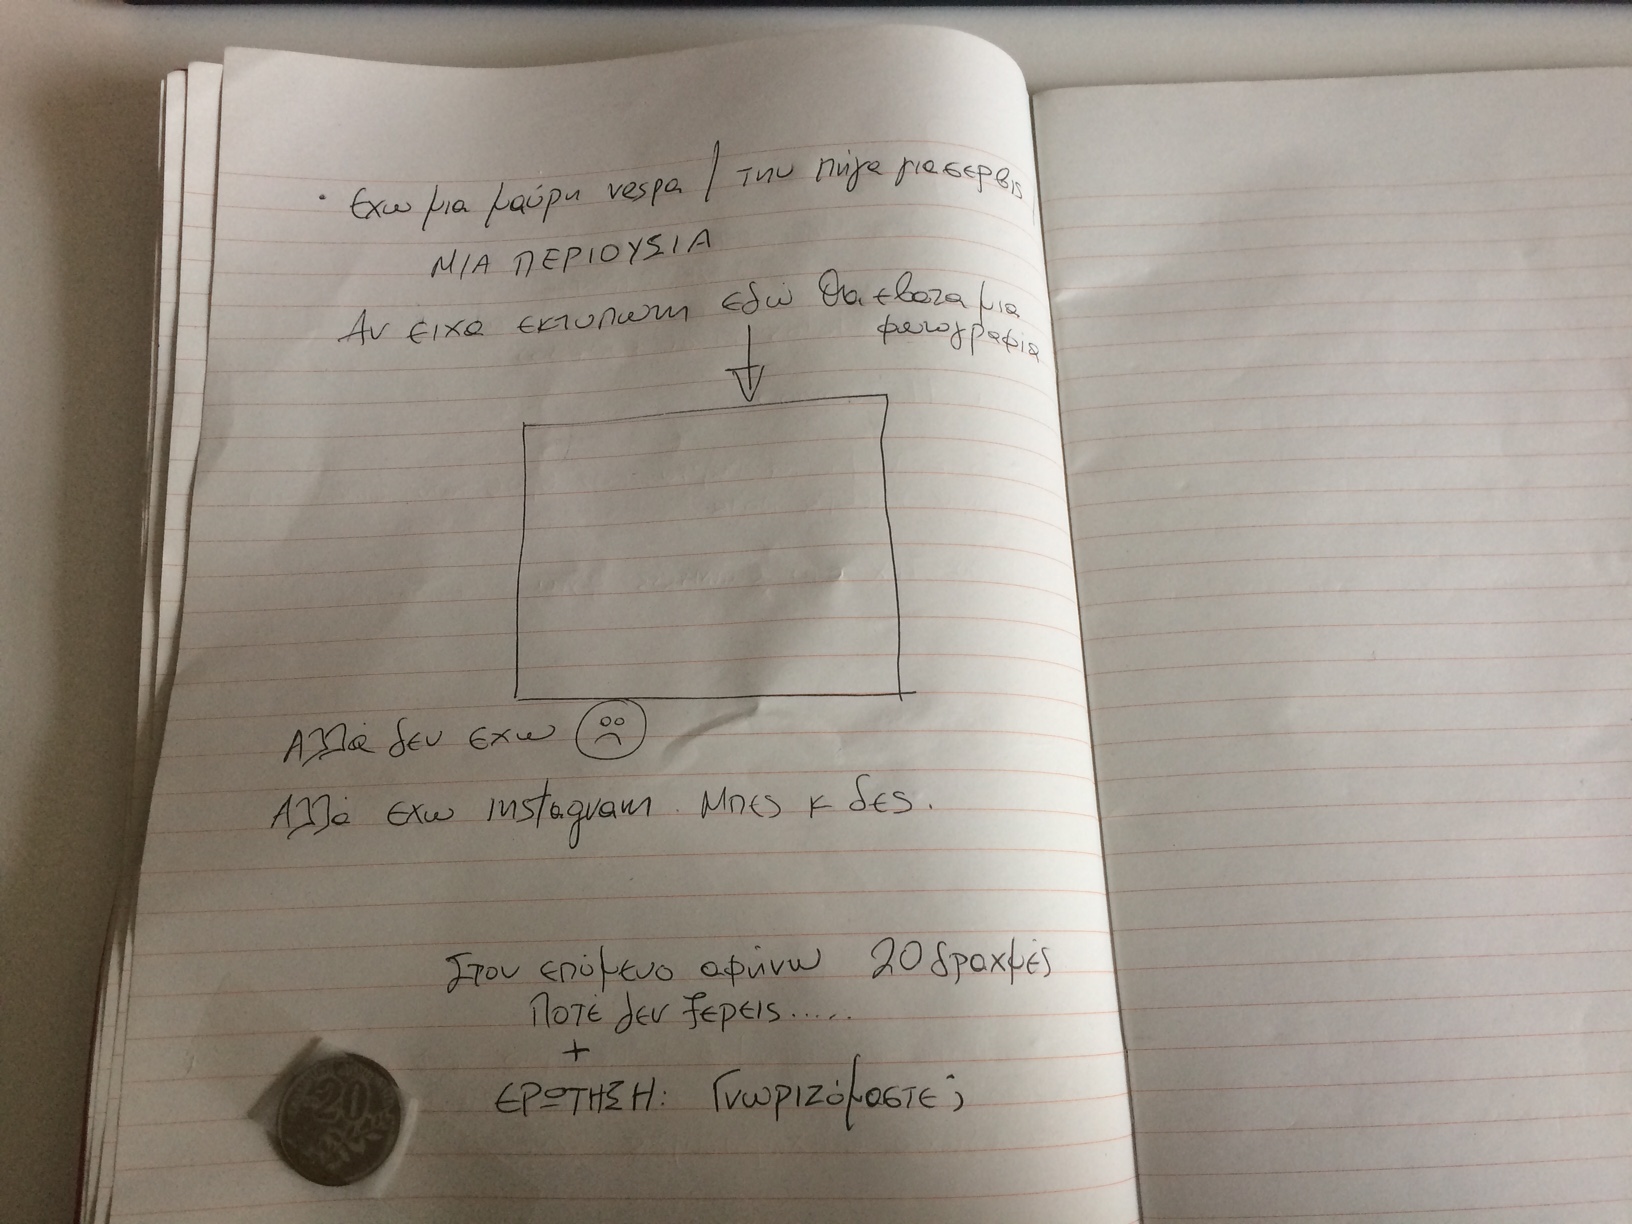 · Εχω μια μαύρη vespa / την πήγα για σερβις
ΜΙΑ ΠΕΡΙΟΥΣΙΑ
Αν ειχα εκτυπωτη εδώ θα εβαζα μια
φωτογραφία
Αλλά δεν εχω
Αλλά εχω instagram. Μπες κ δες.
Στον επόμενο αφήνω 20 δραχμές
Ποτέ δεν ξερεις.....
+
ΕΡΩΤΗΣΗ: Γνωριζόμαστε;
20